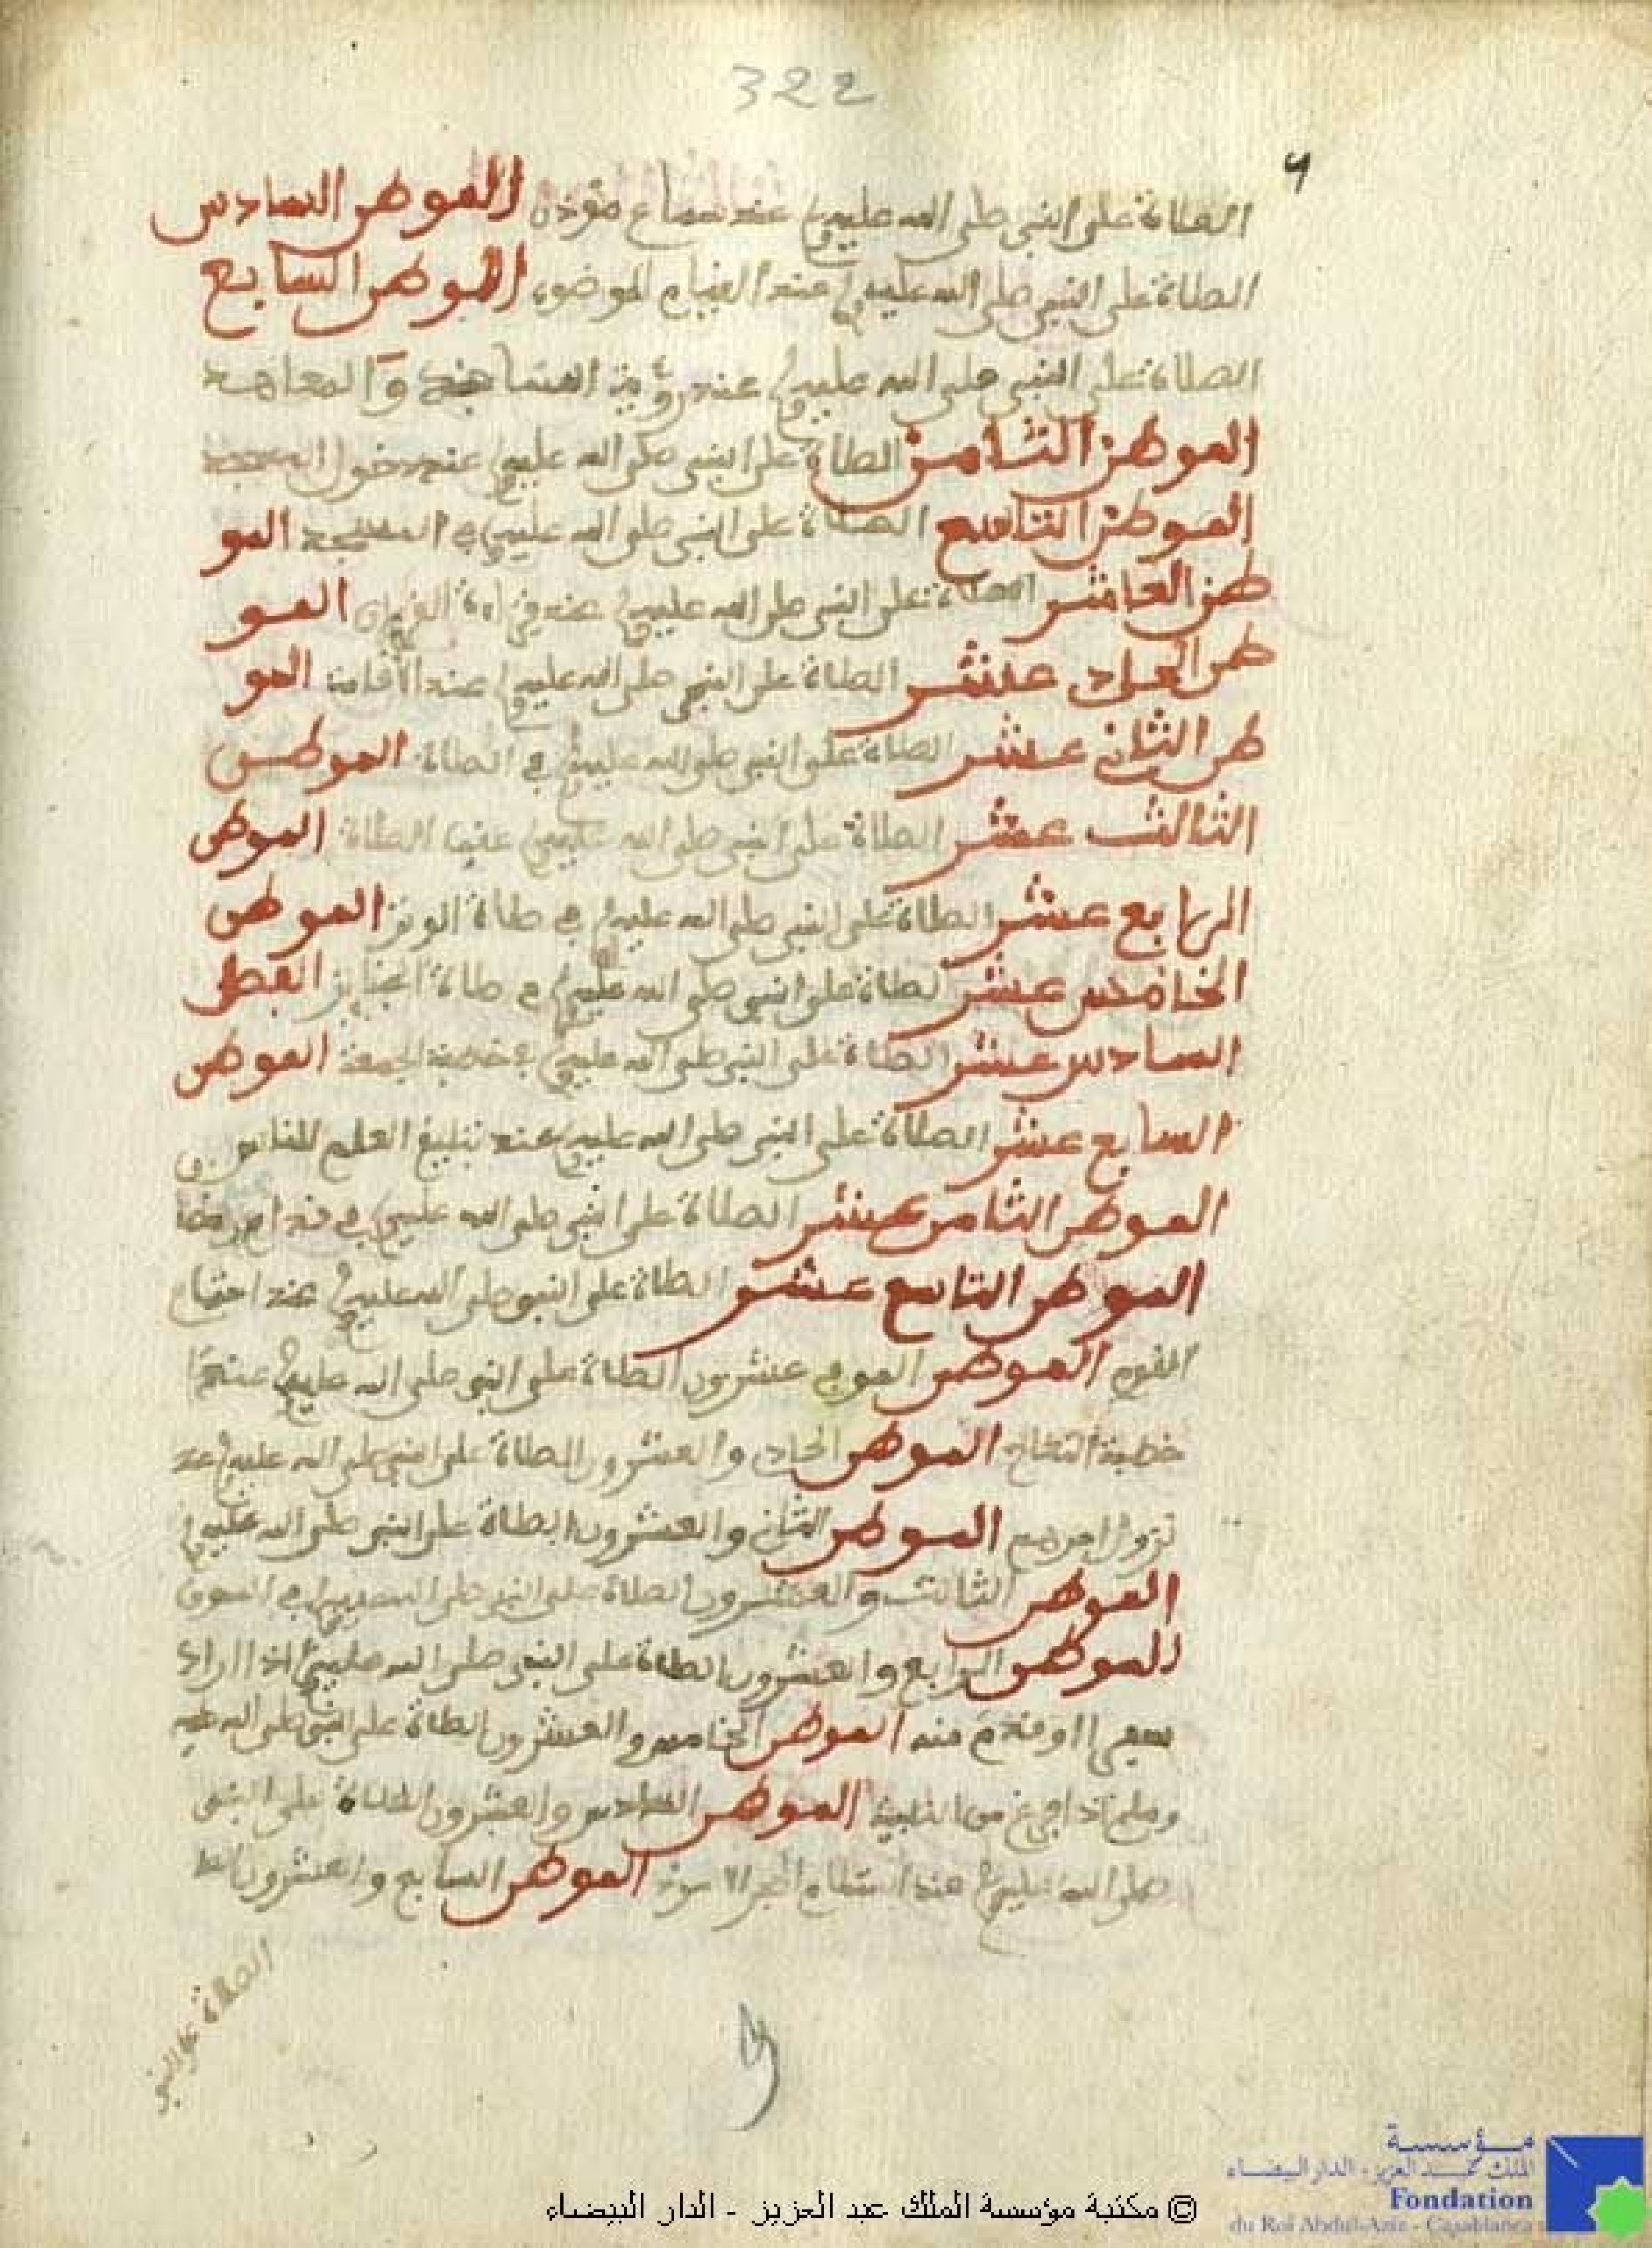 322
الصلاة على النبي صلى الله عليه وسلم عند سماع مؤذن الموطن السادس
الصلاة على النبي صلى الله عليه وسلم عند القيام للوضوء الموطن السابع
الصلاة على النبي صلى الله عليه وسلم عند رؤية المساجد والمعاهد
الموطن الثامن الصلاة على النبي صلى الله عليه وسلم عند دخول المسجد
الموطن التاسع الصلاة على النبي صلى الله عليه وسلم في المسجد المو
طن العاشر الصلاة على النبي صلى الله عليه وسلم عند قراءة القرءان المو
طن الحادي عشر الصلاة على النبي صلى الله عليه وسلم عند الأقامة المو
طن الثاني عشر الصلاة على النبي صلى الله عليه وسلم في الصلاة الموطن
الثالث عشر الصلاة على النبي صلى الله عليه وسلم عقب الصلاة الموطن
الرابع عشر الصلاة على النبي صلى الله عليه وسلم في صلاة الوتر الموطن
الخامس عشر لصلاة على النبي صلى الله عليه وسلم في صلاة الجنايز
السادس عشر الصلاة على النبي صلى الله عليه وسلم في خطبة الجمعة الموطن
السابع عشر الصلاة على النبي صلى الله عليه وسلم عند تبليغ العلم للناس
الموطن الثامن عشر الصلاة على النبي صلى الله عليه وسلم في
الموطن التاسع عشر الصلاة على النبي صلى الله عليه وسلم عند اجتماع
القوم الموطن الموفي عشرون الصلاة على النبي صلى الله عليه وسلم عند
خطبة النكاح الموطن الحادي والعشرون الصلاة على النبي صلى الله عليه وسلم عند
نزول امر مهم الموطن الثاني والعشرون الصلاة على النبي صلى الله عليه وسلم
الموطن الثالث والعشرون الصلاة على النبي صلى الله عليه وسلم في السوق
الموطن الرابع والعشرون الصلاة على النبي صلى الله عليه وسلم اذا اراد
سفرا او قدم منه الموطن الخامس والعشرون الصلاة على النبي صلى الله عليه
وسلم اذا فرغ من التلبية الموطن السادس والعشرون الصلاة على النبي
صلى الله عليه وسلم عند استلام الحجر الاسود الموطن السابع والعشرون الصلا
الصلاة على النبي
مؤسسة
الملك عبد العزيز - الدار البيضاء
Fondation
du Roi Abdul-Aziz - Casablanca
© مكتبة مؤسسة الملك عبد العزيز - الدار البيضاء